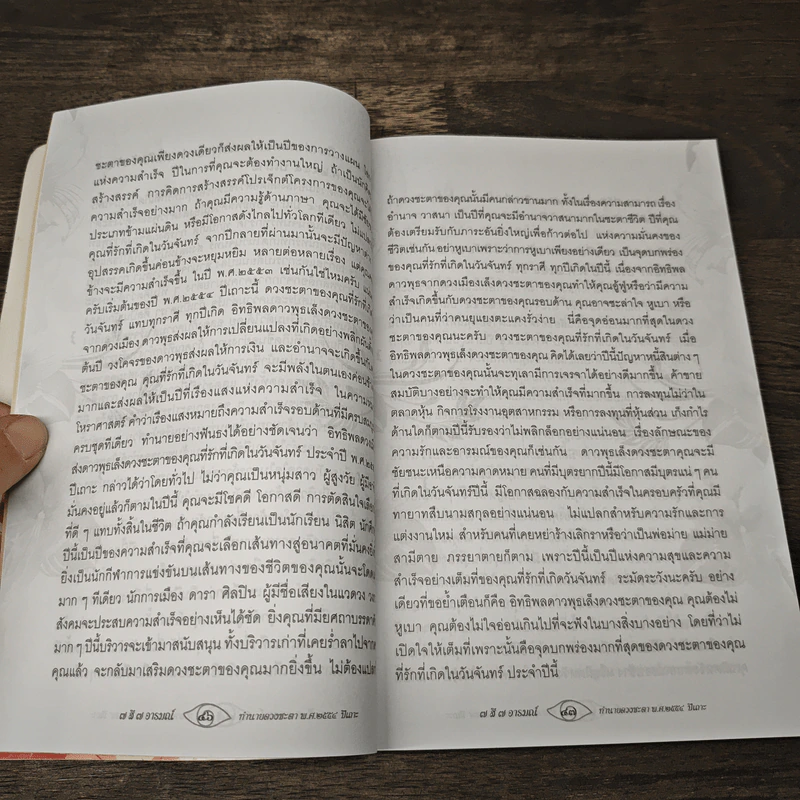 ชะตาของคุณเพียงดวงเดียวก็ส่งผลให้เป็นปีของการวางแผน
แห่งความสำเร็จ ปีในการที่คุณจะต้องทำงานใหญ่ ถ้าเป็นนัก
สร้างสรรค์ การคิดการสร้างสรรค์โปรเจ็กต์โครงการของคุณจะ
ความสำเร็จอย่างมาก ถ้าคุณมีความรู้ด้านภาษา คุณจะได้มี
ประเภทข้ามแผ่นดิน หรือมีโอกาสดังไกลไปทั่วโลกที่เดียว
คุณที่รักที่เกิดในวันจันทร์ จากปีกลายที่ผ่านมานั้นจะมีปัญหา
อุปสรรคเกิดขึ้นค่อนข้างจะหยุมหยิม หลายต่อหลายเรื่อง แต่
ข้างจะมีความสำเร็จขึ้น ในปี พ.ศ.๒๕๕๓ เช่นกันใช่ไหมครับ
ครับเริ่มต้นของปี พ.ศ.๒๕๕๔ ปีเถาะนี้ ดวงชะตาของคุณที่รักที่
วันจันทร์ แทบทุกราศี ทุกปีเกิด อิทธิพลดาวพุธเล็งดวงชะตาของ
จากดวงเมือง ดาวพุธส่งผลให้การเปลี่ยนแปลงที่เกิดอย่างพลิก
ต้นปี วงโคจรของดาวพุธส่งผลให้การเงิน และอำนาจจะเกิดขึ้น
ชะตาของคุณ คุณที่รักที่เกิดในวันจันทร์ จะมีพลังในตนเอง
มากและส่งผลให้เป็นปีที่เรืองแสงแห่งความสำเร็จ ในความ
โหราศาสตร์ คำว่าเรืองแสงหมายถึงความสำเร็จรอบด้านที่มี
ครบชุดทีเดียว ทำนายอย่างฟันธงได้อย่างชัดเจนว่า อิทธิพล
ส่งดาวพุธเล็งดวงชะตาของคุณที่รักที่เกิดในวันจันทร์ ประจำปี
ปีเถาะ กล่าวได้ว่าโดยทั่วไป ไม่ว่าคุณเป็นหนุ่มสาว ผู้สูงวัย
มั่นคงอยู่แล้วก็ตามในปีนี้ คุณจะมีโชคดี โอกาสดี การตัดสินใจ
ที่ดี ๆ แทบทั้งสิ้นในชีวิต ถ้าคุณกำลังเรียนเป็นนักเรียน นิสิต
ปีนี้เป็นปีของความสำเร็จที่คุณจะเลือกเส้นทางสู่อนาคตที่มั่นคง
ยิ่งเป็นนักกีฬาการแข่งขันบนเส้นทางของชีวิตของคุณนั้นจะ
มาก ๆ ทีเดียว นักการเมือง ดารา ศิลปิน ผู้มีชื่อเสียงในแวดวง
สังคมจะประสบความสำเร็จอย่างเห็นได้ชัด ยิ่งคุณที่มียศถาบรรดา
มาก ๆ ปีนี้บริวารจะเข้ามาสนับสนุน ทั้งบริวารเก่าที่เคยร่ำลาไปจาก
คุณแล้ว จะกลับมาเสริมดวงชะตาของคุณมากยิ่งขึ้น ไม่ต้อง
๗ สี ๗ อารมณ์ ๔๖ ทำนายดวงชะตา พ.ศ.๒๕๕๔ ปีเถาะ
ถ้าดวงชะตาของคุณนั้นมีคนกล่าวขานมาก ทั้งในเรื่องความสามารถ เรื่อง
อำนาจ วาสนา เป็นปีที่คุณจะมีอำนาจวาสนามากในชะตาชีวิต ปีที่คุณ
ต้องเตรียมรับกับภาระอันยิ่งใหญ่เพื่อก้าวต่อไป แห่งความมั่นคงของ
ชีวิตเช่นกัน อย่าหูเบาเพราะว่าการหูเบาเพียงอย่างเดียว เป็นจุดบกพร่อง
ของคุณที่รักที่เกิดในวันจันทร์ ทุกราศี ทุกปีเกิดในปีนี้ เนื่องจากอิทธิพล
ดาวพุธจากดวงเมืองเล็งชะตาของคุณทำให้คุณอู้ฟู่หรือว่ามีความ
สำเร็จเกิดขึ้นกับดวงชะตาของคุณรอบด้าน คุณอาจชะล่าใจ หูเบา หรือ
ว่าเป็นคนที่ว่าคนยุแยงตะแคงรั่วง่าย นี่คือจุดอ่อนมากที่สุดในดวง
ชะตาของคุณนะครับ ดวงชะตาของคุณที่รักที่เกิดในวันจันทร์ เมื่อ
อิทธิพลดาวพุธเล็งดวงชะตาของคุณ คิดได้เลยว่าปีนี้ปัญหาหนี้สินต่าง ๆ
ในดวงชะตาของคุณนั้นจะทุเลามีการเจรจาได้อย่างดีมากขึ้น ค้าขาย
สมบัติบางอย่างจะทำให้คุณมีความสำเร็จที่มากขึ้น การลงทุนไม่ว่าใน
ตลาดหุ้น กิจการโรงงานอุตสาหกรรม หรือการลงทุนที่หุ้นส่วน เก็งกำไร
ด้านใดก็ตามปีนี้รับรองว่าไม่พลิกล็อกอย่างแน่นอน เรื่องลักษณะของ
ความรักและอารมณ์ของคุณก็เช่นกัน ดาวพุธเล็งดวงชะตาคุณจะมี
ชัยชนะเหนือความคาดหมาย คนที่มีบุตรยากปีนี้มีโอกาสมีบุตรแน่ ๆ คน
ที่เกิดในวันจันทร์ปีนี้ มีโอกาสฉลองกับความสำเร็จในครอบครัวที่คุณมี
ทายาทสืบนามสกุลอย่างแน่นอน ไม่แปลกสำหรับความรักและการ
แต่งงานใหม่ สำหรับคนที่เคยหย่าร้างเลิกราหรือว่าเป็นพ่อม่าย แม่ม่าย
สามีตาย ภรรยาตายก็ตาม เพราะปีนี้เป็นปีแห่งความสุขและความ
สำเร็จอย่างเต็มที่ของคุณที่รักที่เกิดวันจันทร์ ระมัดระวังนะครับ อย่าง
เดียวที่ขอย้ำเตือนก็คือ อิทธิพลดาวพุธเล็งดวงชะตาของคุณ คุณต้องไม่
หูเบา คุณต้องไม่ใจอ่อนเกินไปที่จะฟังในบางสิ่งบางอย่าง โดยที่ว่าไม่
เปิดใจให้เต็มที่เพราะนั้นคือจุดบกพร่องมากที่สุดของดวงชะตาของคุณ
ที่รักที่เกิดในวันจันทร์ ประจำปีนี้
๗ สี ๗ อารมณ์ ๔๗ ทำนายดวงชะตา พ.ศ.๒๕๕๔ ปีเถาะ